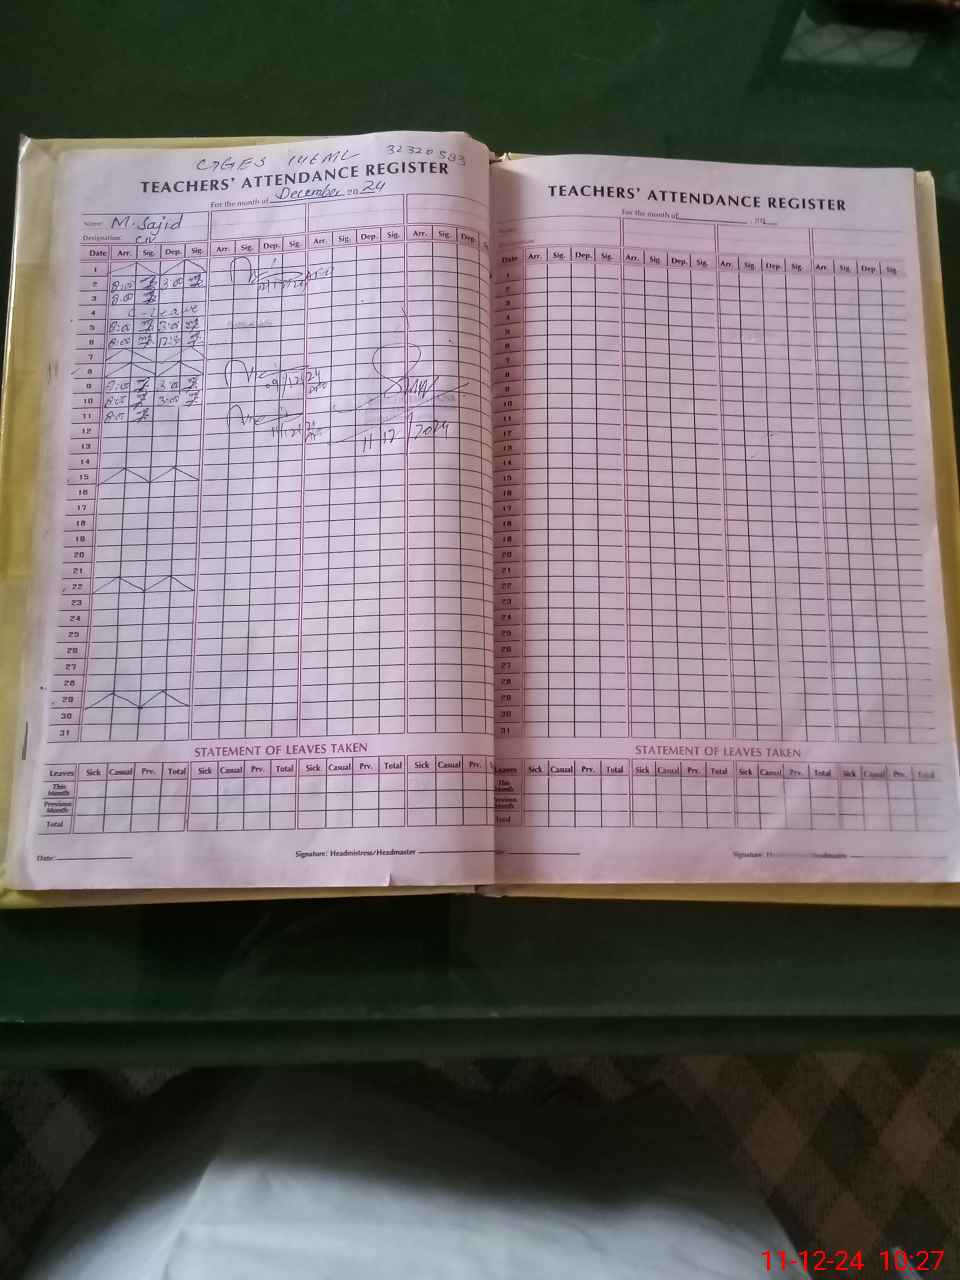 32320583
TEACHERS' ATTENDANCE REGISTER
For the month of December 2024
Name: M. Sajid
Designation: C.IV
Date Arr. Sig. Dep. Sig. Arr. Sig. Dep. Sig. Arr. Sig. Dep. Sig. Arr. Sig. Dep. S
1
2 8:00 3:00
3 8:00
4 C-Leave
5 8:00 3:00
6 8:00
7
8
9 8:00 3:00
09/12/24
10 8:00 3:00
11 8:00
11/12/24
11/12/2024
12
13
14
15
16
17
18
19
20
21
22
23
24
25
26
27
28
29
30
31
STATEMENT OF LEAVES TAKEN
Leaves Sick Casual Prv. Total Sick Casual Prv. Total Sick Casual Prv. Total Sick Casual Prv.
This Month
Previous Month
Total
Date:
Signature: Headmistress/Headmaster
TEACHERS' ATTENDANCE REGISTER
For the month of 20
Date Arr. Sig. Dep. Sig. Arr. Sig. Dep. Sig. Arr. Sig. Dep. Sig. Arr. Sig. Dep. Sig.
1
2
3
4
5
6
7
8
9
10
11
12
13
14
15
16
17
18
19
20
21
22
23
24
25
26
27
28
29
30
31
STATEMENT OF LEAVES TAKEN
Leaves Sick Casual Prv. Total Sick Casual Prv. Total Sick Casual Prv. Total Sick Casual Prv. Total
This Month
Previous Month
Total
Signature: Headmistress/Headmaster
11-12-24 10:27